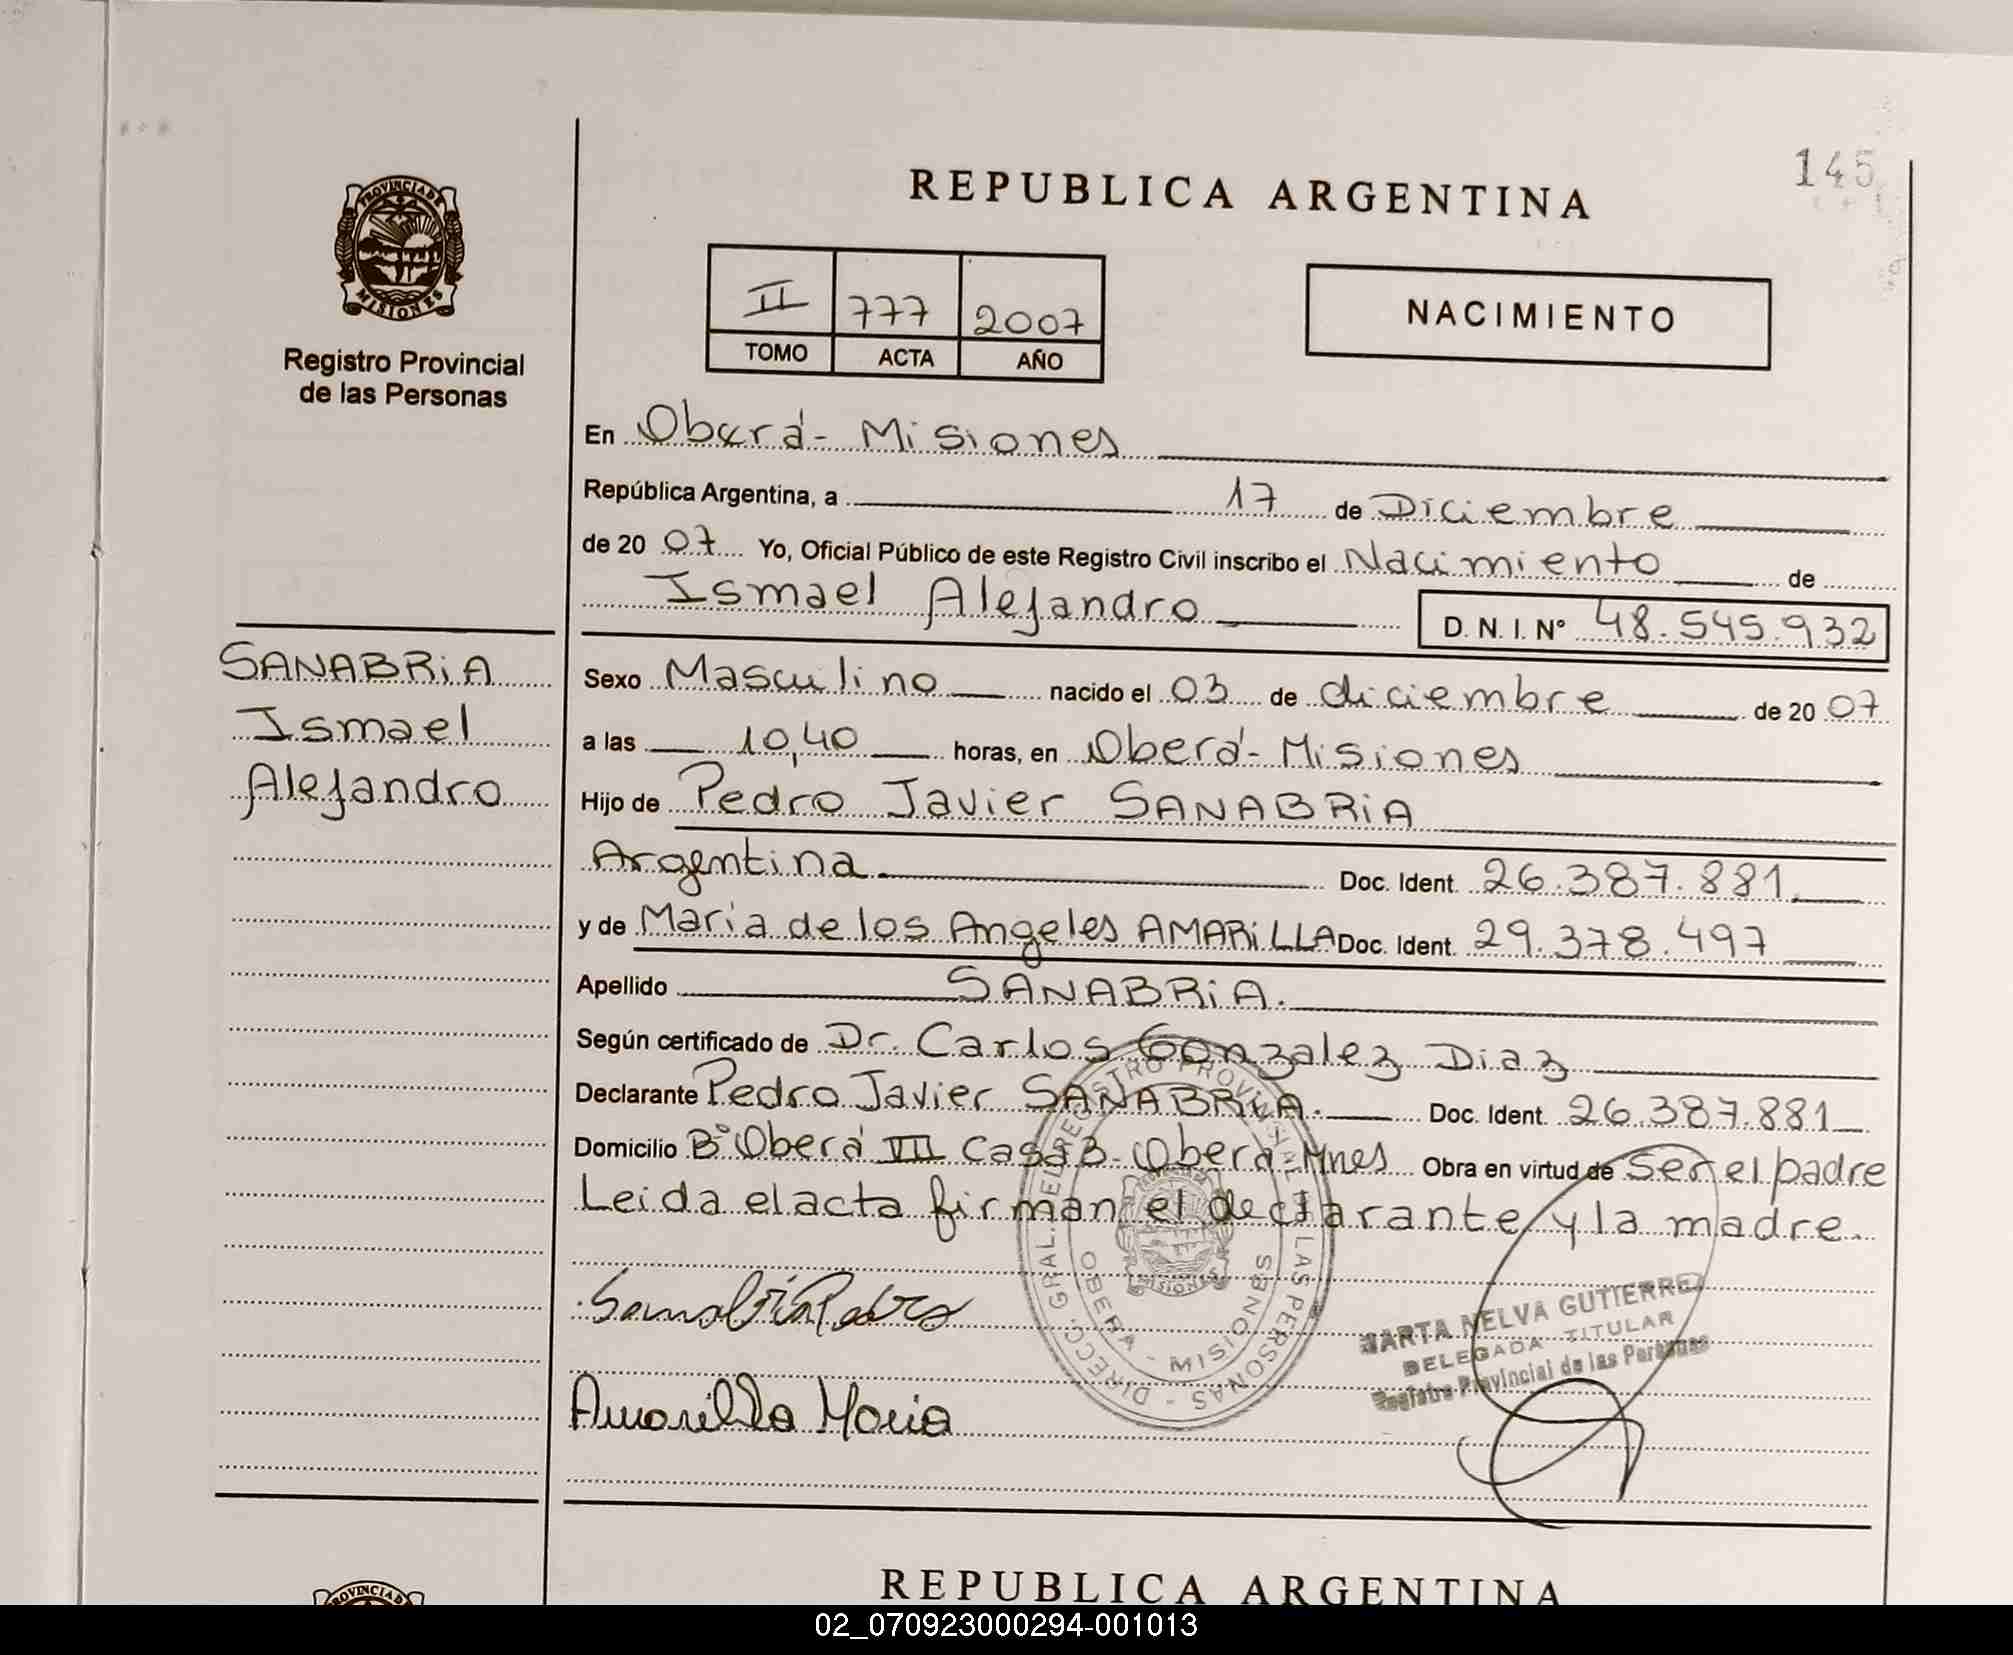 145
PROVINCIA DE
MISIONES
Registro Provincial
de las Personas
REPUBLICA ARGENTINA
II 777 2007
TOMO ACTA AÑO
NACIMIENTO
En Oberá - Misiones
República Argentina, a 17 de Diciembre
de 20 07 Yo, Oficial Público de este Registro Civil inscribo el Nacimiento de
Ismael Alejandro D. N. I. Nº 48.545.932
SANABRiA
Ismael
Alejandro
Sexo Masculino nacido el 03 de diciembre de 20 07
a las 10,40 horas, en Oberá - Misiones
Hijo de Pedro Javier SANABRiA
Argentina Doc. Ident. 26.387.881
y de Maria de los Angeles AMARiLLA Doc. Ident. 29.378.497
Apellido SANABRiA.
Según certificado de Dr. Carlos Gonzalez Diaz
Declarante Pedro Javier SANABRiA. Doc. Ident. 26.387.881
Domicilio Bº Oberá VII Casa 3 - Oberá - Mnes Obra en virtud de Ser el padre
Leida el acta firman el declarante y la madre.
Sanabria Pedro
Amarilla Maria
DIRECC. GRAL. EL REGISTRO PROVINCIAL DE LAS PERSONAS
OBERA - MISIONES
MISIONES
MARTA NELVA GUTIERREZ
DELEGADA TITULAR
Registro Provincial de las Personas
PROVINCIA
REPUBLICA ARGENTINA
02_070923000294-001013